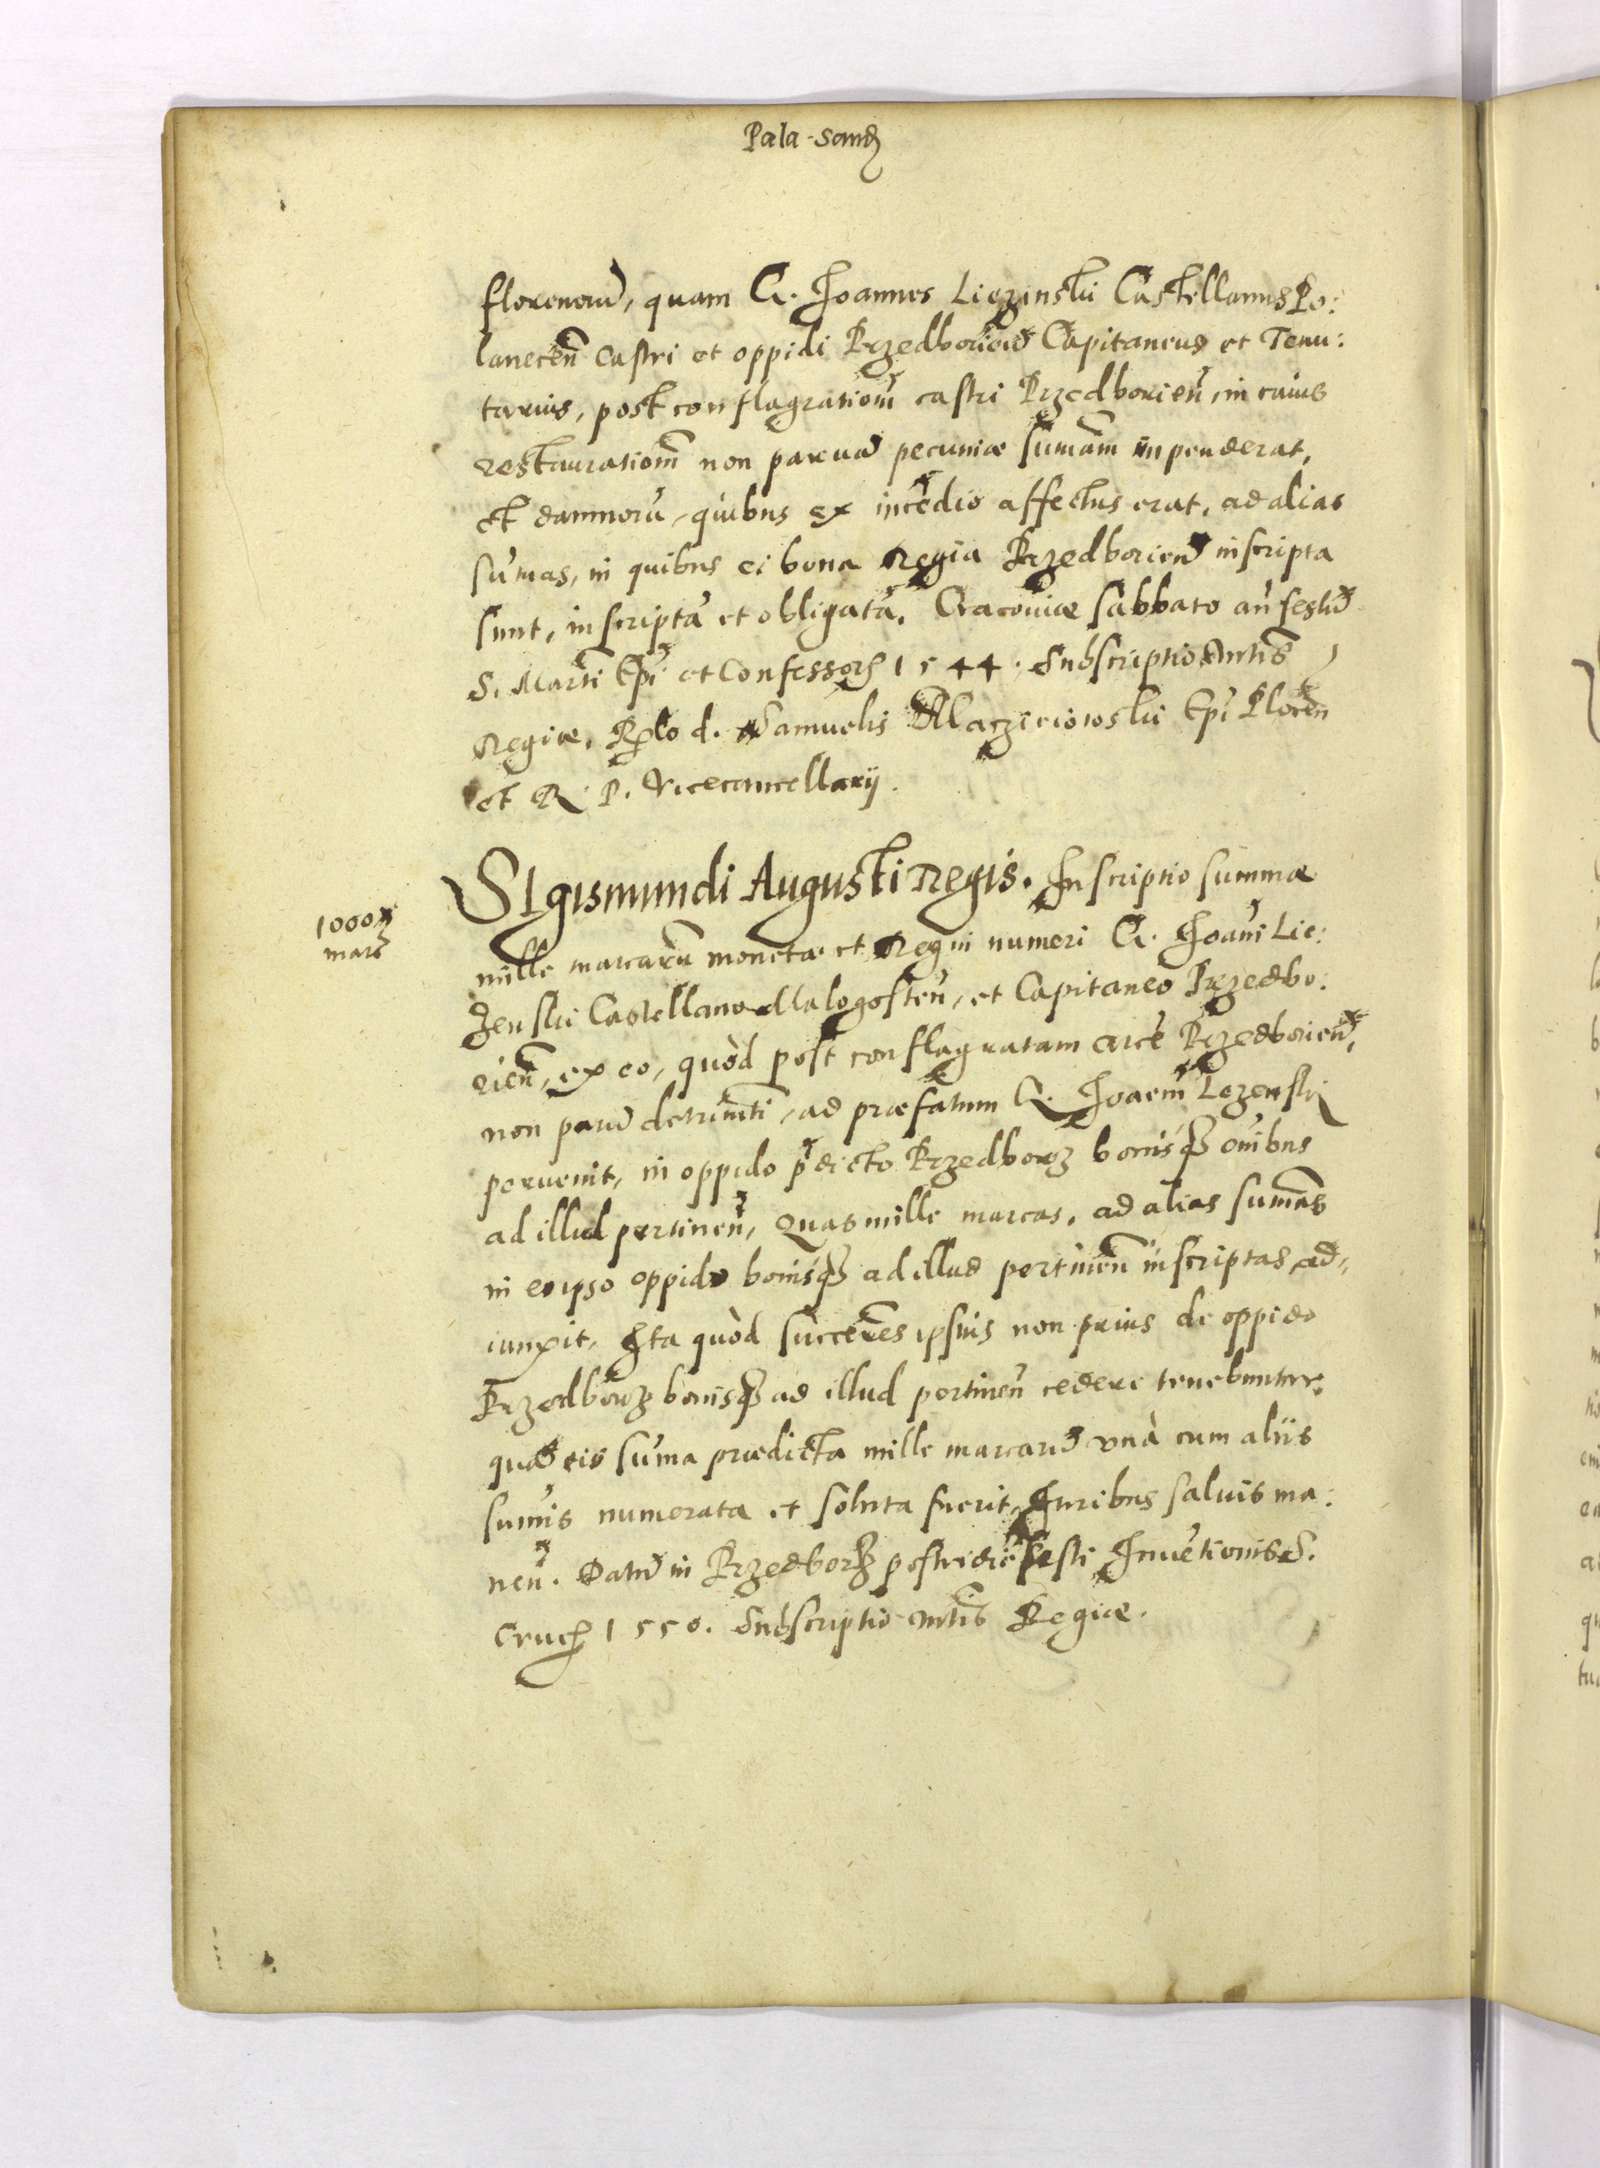 Pala Sand
florenorū, quam G. Joannes Liezinski Castellanus Po:
lanecen̄ Castri et oppidi Przedborien̄ Capitaneus et Tenu:
tarius, post conflagrationē castri Przedborien̄, in cuius
restaurationē non paruā pecuniæ sum̄am inpenderat,
et damnorū, quibus ex incēdio affectus erat, ad alias
sūmas, in quibus ei bona Regia Przedborien̄ inscripta
sunt, inscriptā et obligatā. Cracoviæ Sabbato an̄ festū
S. Martī Ep̄i et Confessoris 1544. Subscriptio Mtis
Regiæ, Rel̄o d. Samuelis Macziciowski Ep̄i Plocen̄
et R. P. Vicecancellarij.
SIgismundi Augusti Regis. Inscriptio summæ
1000
marc
mille marcarū monetæ et Regni numeri G. Joan̄i Lie:
zenski Castellano Malogosten̄, et Capitaneo Przedbo:
rien̄, ex eo, quòd post conflagratam arcē Przedborien̄,
non parū detrimēti, ad præfatum G. Joaem̄ Lezenski
peruenit, in oppido p̄dicto Przedborz bonisq; om̄ibus
ad illud pertinen̄, Quas mille marcas, ad alias sum̄as
in eo ipso oppido bonisq; ad illud pertinen̄ inscriptas, ad„
iunxit, Ita quòd succēres ipsius non prius de oppido
Przedborz bonisq; ad illud pertinen̄ cedere tenebuntur,
quā eis sum̄a prædicta mille marcarū vnà cum aliis
sum̄is numerata et soluta fuerit, Juribus saluis ma:
nen̄. Datū in Przedborz postridie festi Inuētionis S.
Crucis 1550. Subscriptio Mtis Regiæ.